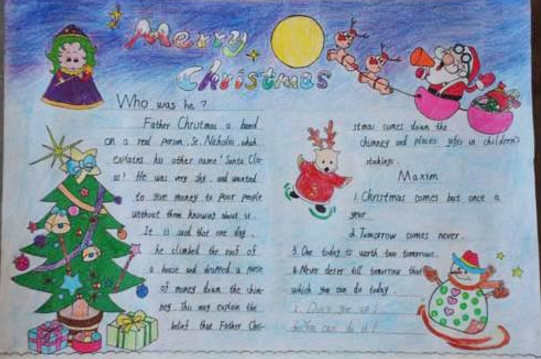 Merry
Christmas
Who was he?
Father Christmas a based
on a real person, St. Nicholas, which
explains his other name 'Santa Cla-
us'! He was very shy and wanted
to give money to poor people
without them knowing about it.
It is said that one day,
he climbed the roof of
a house and dropped a purse
of money down the chim-
ney. This may explain the
belief that Father Chri-
stmas comes down the
chimney and places gifts in children's
stockings.
Maxim
1. Christmas comes but once a
year.
2. Tomorrow comes never.
3. One today is worth two tomorrow.
4. Never defer till tomorrow that
which you can do today.
give up!
You can do it!